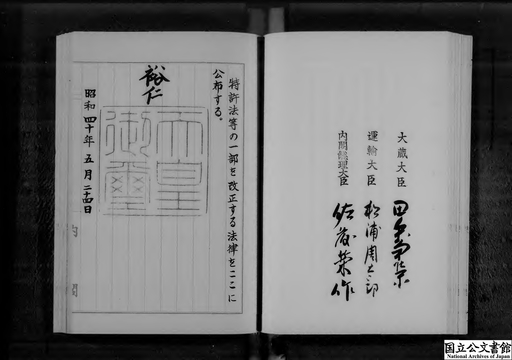 大蔵大臣 田中角栄
運輸大臣 松浦周太郎
内閣総理大臣 佐藤榮作
特許法等の一部を改正する法律をここに
公布する。
裕仁
天皇
御璽
昭和四十年五月二十四日
国立公文書館
National Archives of Japan